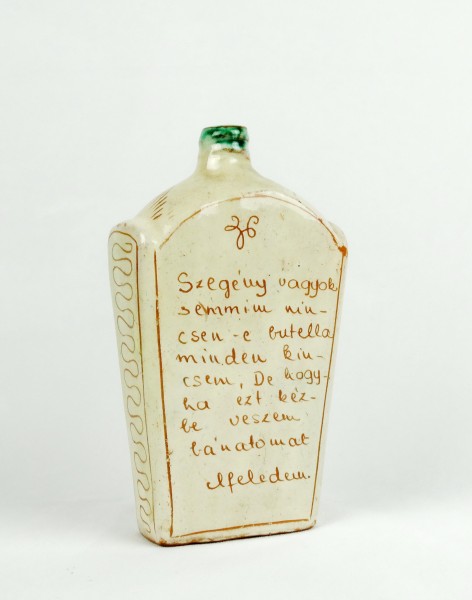 Szegény vagyok
semmim nin-
csen-e butella
minden kin-
csem, De hogy-
ha ezt kéz-
be veszem
bánatomat
elfeledem.